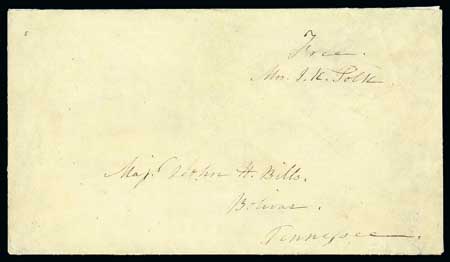 Free.
Mrs. J. K. Polk.
Maj. John H. Bills.
Bolivar.
Tennessee.